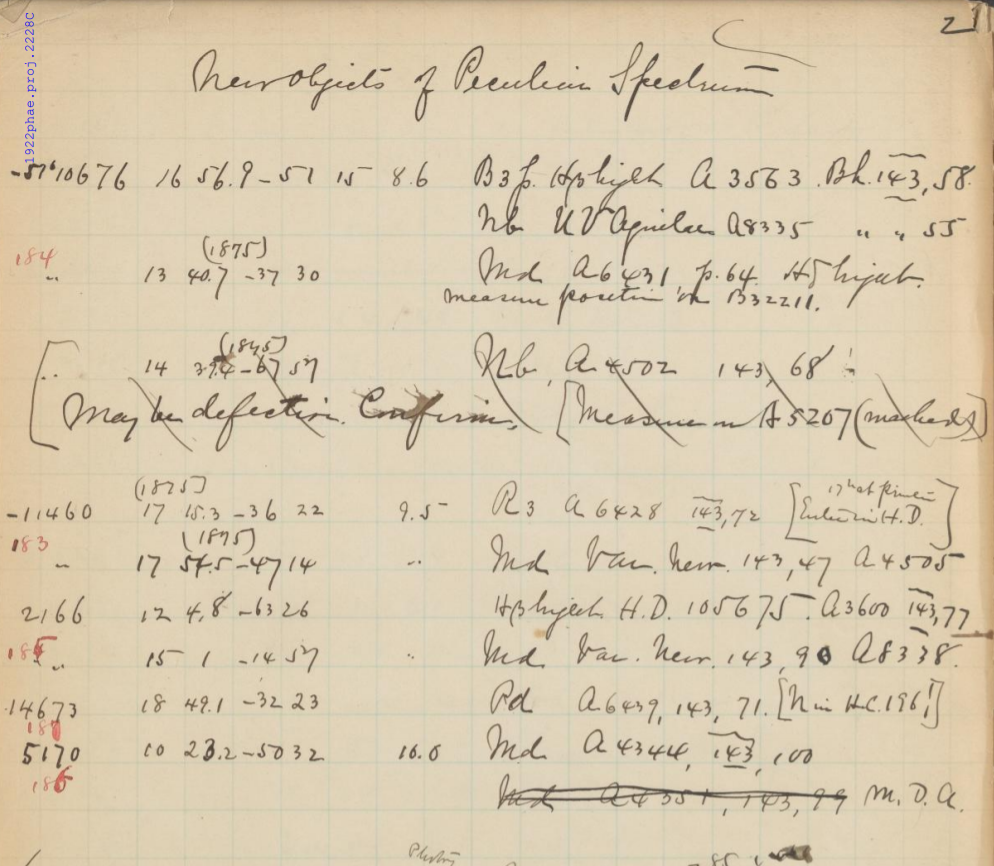 2
1922phae.proj.2228C
New objects of Peculiar Spectrum
-51°10676 16 56.9 -51 15 8.6 B3p. Hβ bright A 3563. Bk. 143, 58.
Nb U V Aquilae A8335 " " 55
184
(1875)
" 13 40.7 -37 30 Md A6431 p. 64 Hδ bright.
measure position on B32211.
(1875)
[.. 14 39.4 -67 57 Nb, A 4502 143, 68
May be defection. Confirm. [Measure on A 5207 (marked)]
(1875)
-11460 17 15.3 -36 22 9.5 R3 A 6428 143,72 [ Enter in H.D. ]
183
(1875)
" 17 54.5 -47 14 " Md Var. New. 143,47 A 4505
2166 12 4.8 -63 26 Hβ bright H.D. 105675. A3600 143,77
185
" 15 1 -14 57 " Md Var. New. 143, 90 A8338.
14673 18 49.1 -32 23 Pd A6439, 143, 71. [N in H.C. 196!]
187
5170 10 23.2 -50 32 10.0 Md A 4344, 143, 100
186
Md A4351, 143, 99 M. D. A.